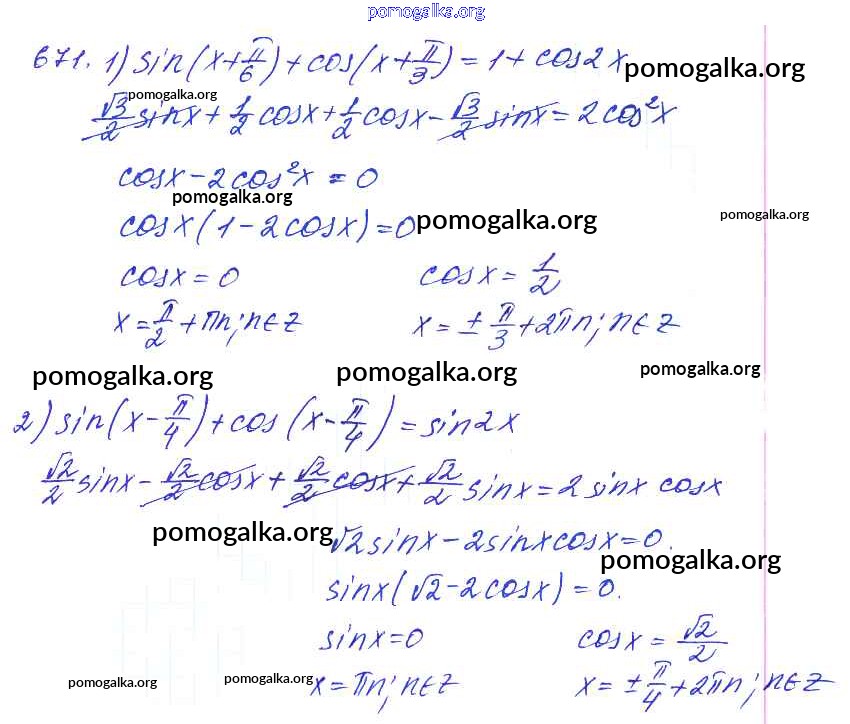 pomogalka.org
671. 1) sin(x+π/6)+cos(x+π/3)=1+cos2x
pomogalka.org
pomogalka.org
√3/2 sinx+1/2 cosx+1/2 cosx-√3/2 sinx=2cos²x
cosx-2cos²x=0
pomogalka.org
cosx(1-2cosx)=0
pomogalka.org
pomogalka.org
cosx=0 cosx=1/2
x=π/2+πn; n∈Z x=±π/3+2πn; n∈Z
pomogalka.org
pomogalka.org
pomogalka.org
2) sin(x-π/4)+cos(x-π/4)=sin2x
√2/2 sinx-√2/2 cosx+√2/2 cosx+√2/2 sinx=2sinx cosx
pomogalka.org
√2sinx-2sinxcosx=0.
pomogalka.org
sinx(√2-2cosx)=0.
sinx=0 cosx=√2/2
pomogalka.org
pomogalka.org
x=πn; n∈Z x=±π/4+2πn; n∈Z